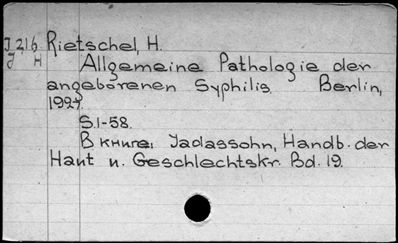 J 216 Rietschel, H.
J H Allgemeine Pathologie der
angeborenen Syphilis Berlin,
1927.
S.1-58.
В книге: Jadassohn, Handb. der
Haut u. Geschlechtskr. Bd. 19.